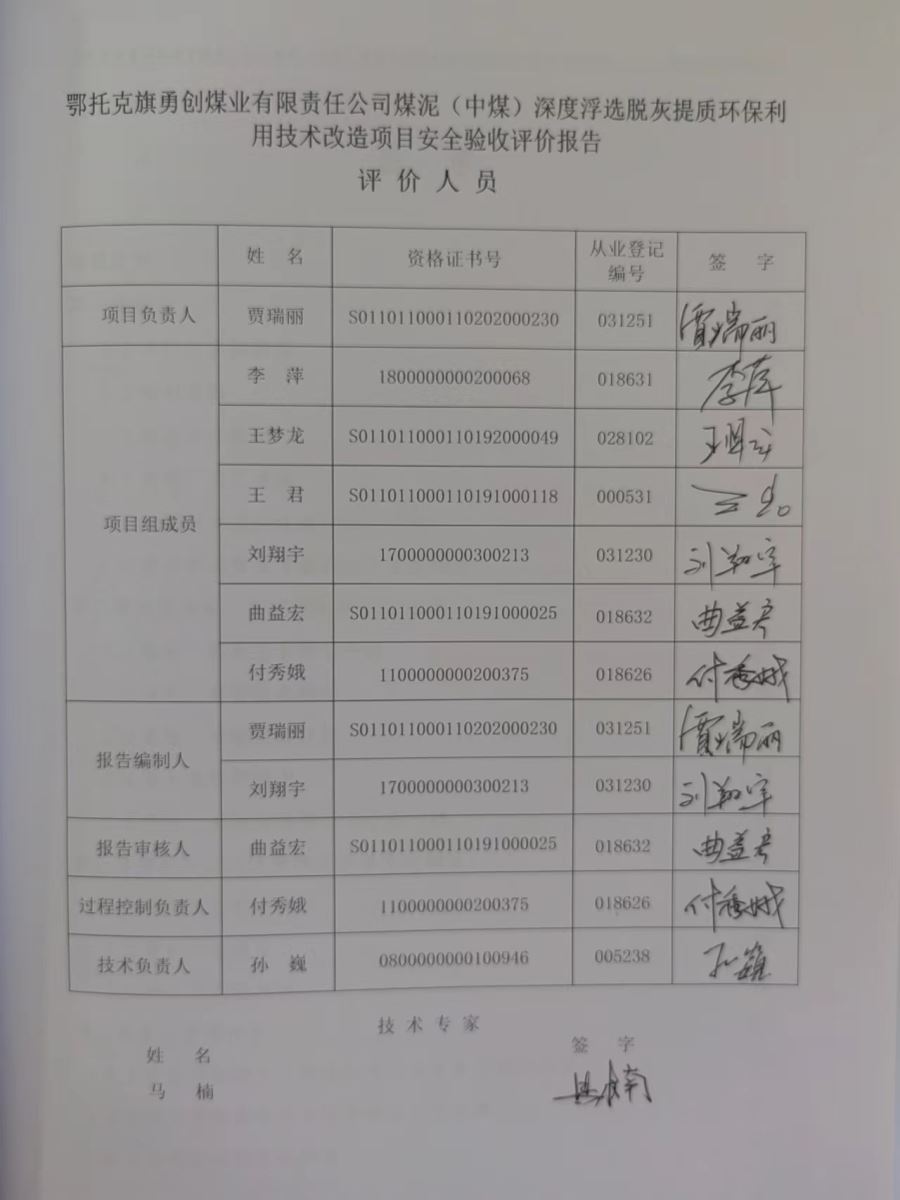 鄂托克旗勇创煤业有限责任公司煤泥（中煤）深度浮选脱灰提质环保利
用技术改造项目安全验收评价报告
评 价 人 员
姓 名 资格证书号 从业登记编号 签 字
项目负责人 贾瑞丽 S011011000110202000230 031251 贾瑞丽
项目组成员
李 萍 1800000000200068 018631 李萍
王梦龙 S011011000110192000049 028102
王 君 S011011000110191000118 000531
刘翔宇 1700000000300213 031230 刘翔宇
曲益宏 S011011000110191000025 018632 曲益宏
付秀娥 1100000000200375 018626 付秀娥
报告编制人
贾瑞丽 S011011000110202000230 031251 贾瑞丽
刘翔宇 1700000000300213 031230 刘翔宇
报告审核人 曲益宏 S011011000110191000025 018632 曲益宏
过程控制负责人 付秀娥 1100000000200375 018626 付秀娥
技术负责人 孙 巍 0800000000100946 005238 孙巍
技 术 专 家
姓 名 签 字
马 楠 马楠